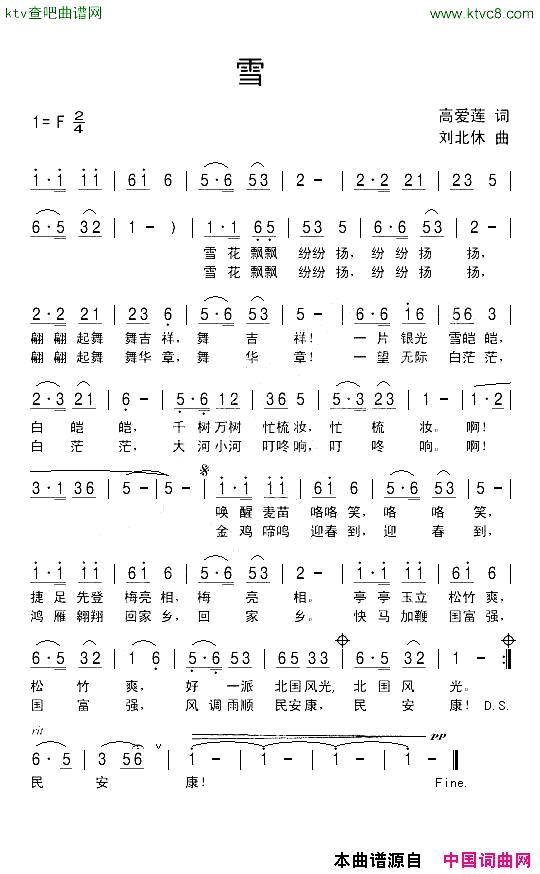 ktv查吧曲谱网 www.ktvc8.com
雪
1=F 2/4
高爱莲 词
刘北休 曲
1·1 11 | 61 6 | 5·6 53 | 2 - | 2·2 21 | 23 5 |
6·5 32 | 1 - ) | 1·1 65 | 53 5 | 6·6 53 | 2 - |
雪 花 飘飘 纷纷 扬, 纷 纷 扬 扬,
雪 花 飘飘 纷纷 扬, 纷 纷 扬 扬,
2·2 21 | 23 6 | 5·6 53 | 2 - | 6·6 16 | 56 3 |
翩 翩 起舞 舞吉 祥, 舞 吉 祥! 一 片 银光 雪皑 皑,
翩 翩 起舞 舞华 章, 舞 华 章! 一 望 无际 白茫 茫,
2·3 21 | 6 - | 5·6 12 | 36 5 | 3·5 23 | 1 - | 1·2 |
白 皑 皑, 千 树 万树 忙梳 妆, 忙 梳 妆。 啊!
白 茫 茫, 大 河 小河 叮咚 响, 叮 咚 响。 啊!
3·1 36 | 5 - | 5 - | 1·1 11 | 61 6 | 5·6 53 |
唤 醒 麦苗 咯咯 笑, 咯 咯 笑,
金 鸡 啼鸣 迎春 到, 迎 春 到,
1·1 11 | 61 6 | 5·6 53 | 2 - | 1·1 21 | 61 6 |
捷 足 先登 梅亮 相, 梅 亮 相。 亭 亭 玉立 松竹 爽,
鸿 雁 翱翔 回家 乡, 回 家 乡。 快 马 加鞭 国富 强,
6·5 32 | 1 6 | 5·5 61 | 23 5 | 6·5 32 | 1 - :||
松 竹 爽, 好 一派 北国 风光, 北 国 风 光。
国 富 强, 风 调 雨顺 民安 康, 民 安 康! D.S.
rit
6·5 | 3 56 ∨ | 1 - | 1 - | 1 - | 1 - ||
民 安 康! Fine.
本曲谱源自 中国词曲网